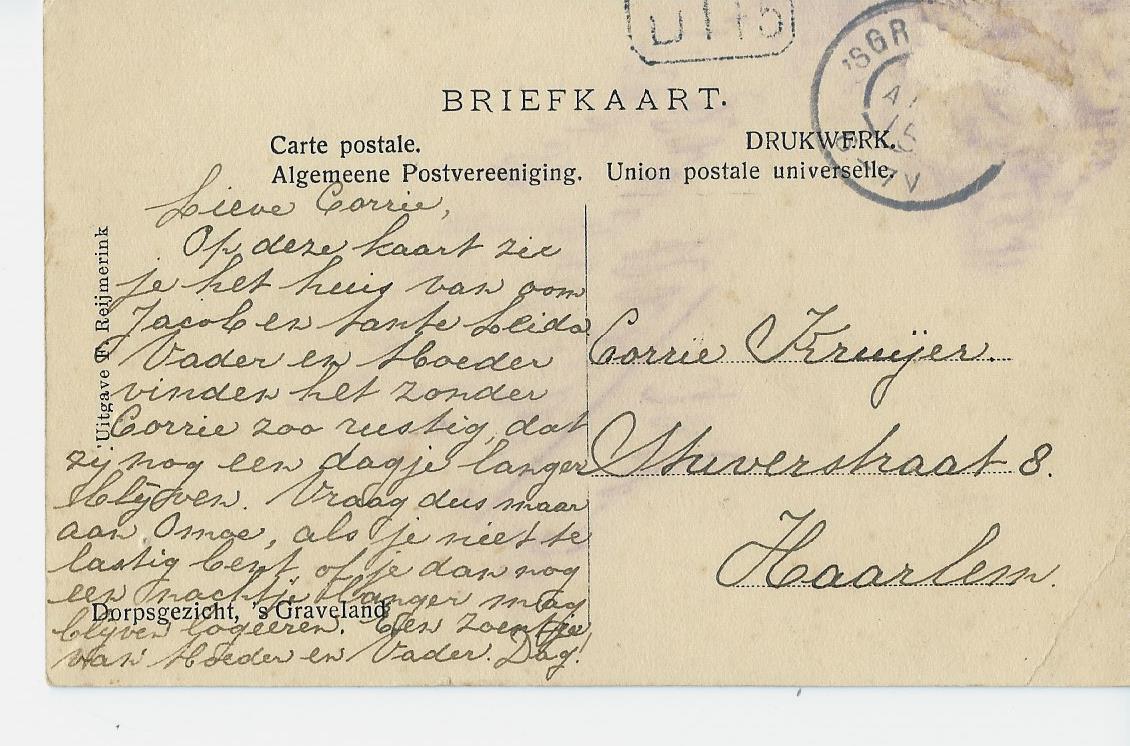 BRIEFKAART.
Carte postale.
DRUKWERK.
Algemeene Postvereeniging. Union postale universelle.
'SGR
Lieve Corrie,
Op deze kaart zie
je het huis van oom
Jacob en tante Leida
Vader en Moeder
vinden het zonder
Corrie zoo rustig, dat
zij nog een dagje langer
blijven. Vraag dus maar
aan Omoe, als je niet te
lastig bent of je dan nog
een nachtje langer mag
blijven logeeren. Een zoentje
van Moeder en Vader. Dag!
Corrie Kruijer.
Stuverstraat 8.
Haarlem.
Dorpsgezicht, 's Graveland
Uitgave F. Reijmerink